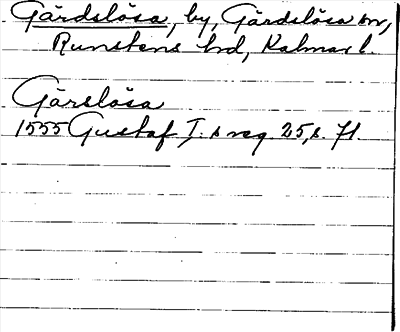 Gärdslösa, by, Gärdslösa sn,
Runstens hd, Kalmar l.
Gärslösa
1555 Gustaf I:s reg. 25, s. 71